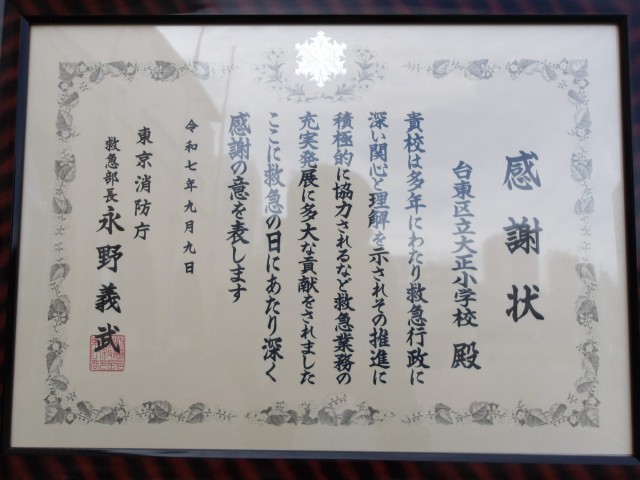 感謝状
台東区立大正小学校 殿
貴校は多年にわたり救急行政に
深い関心と理解を示されその推進に
積極的に協力されるなど救急業務の
充実発展に多大な貢献をされました
ここに救急の日にあたり深く
感謝の意を表します
令和七年九月九日
東京消防庁
救急部長 永野義武